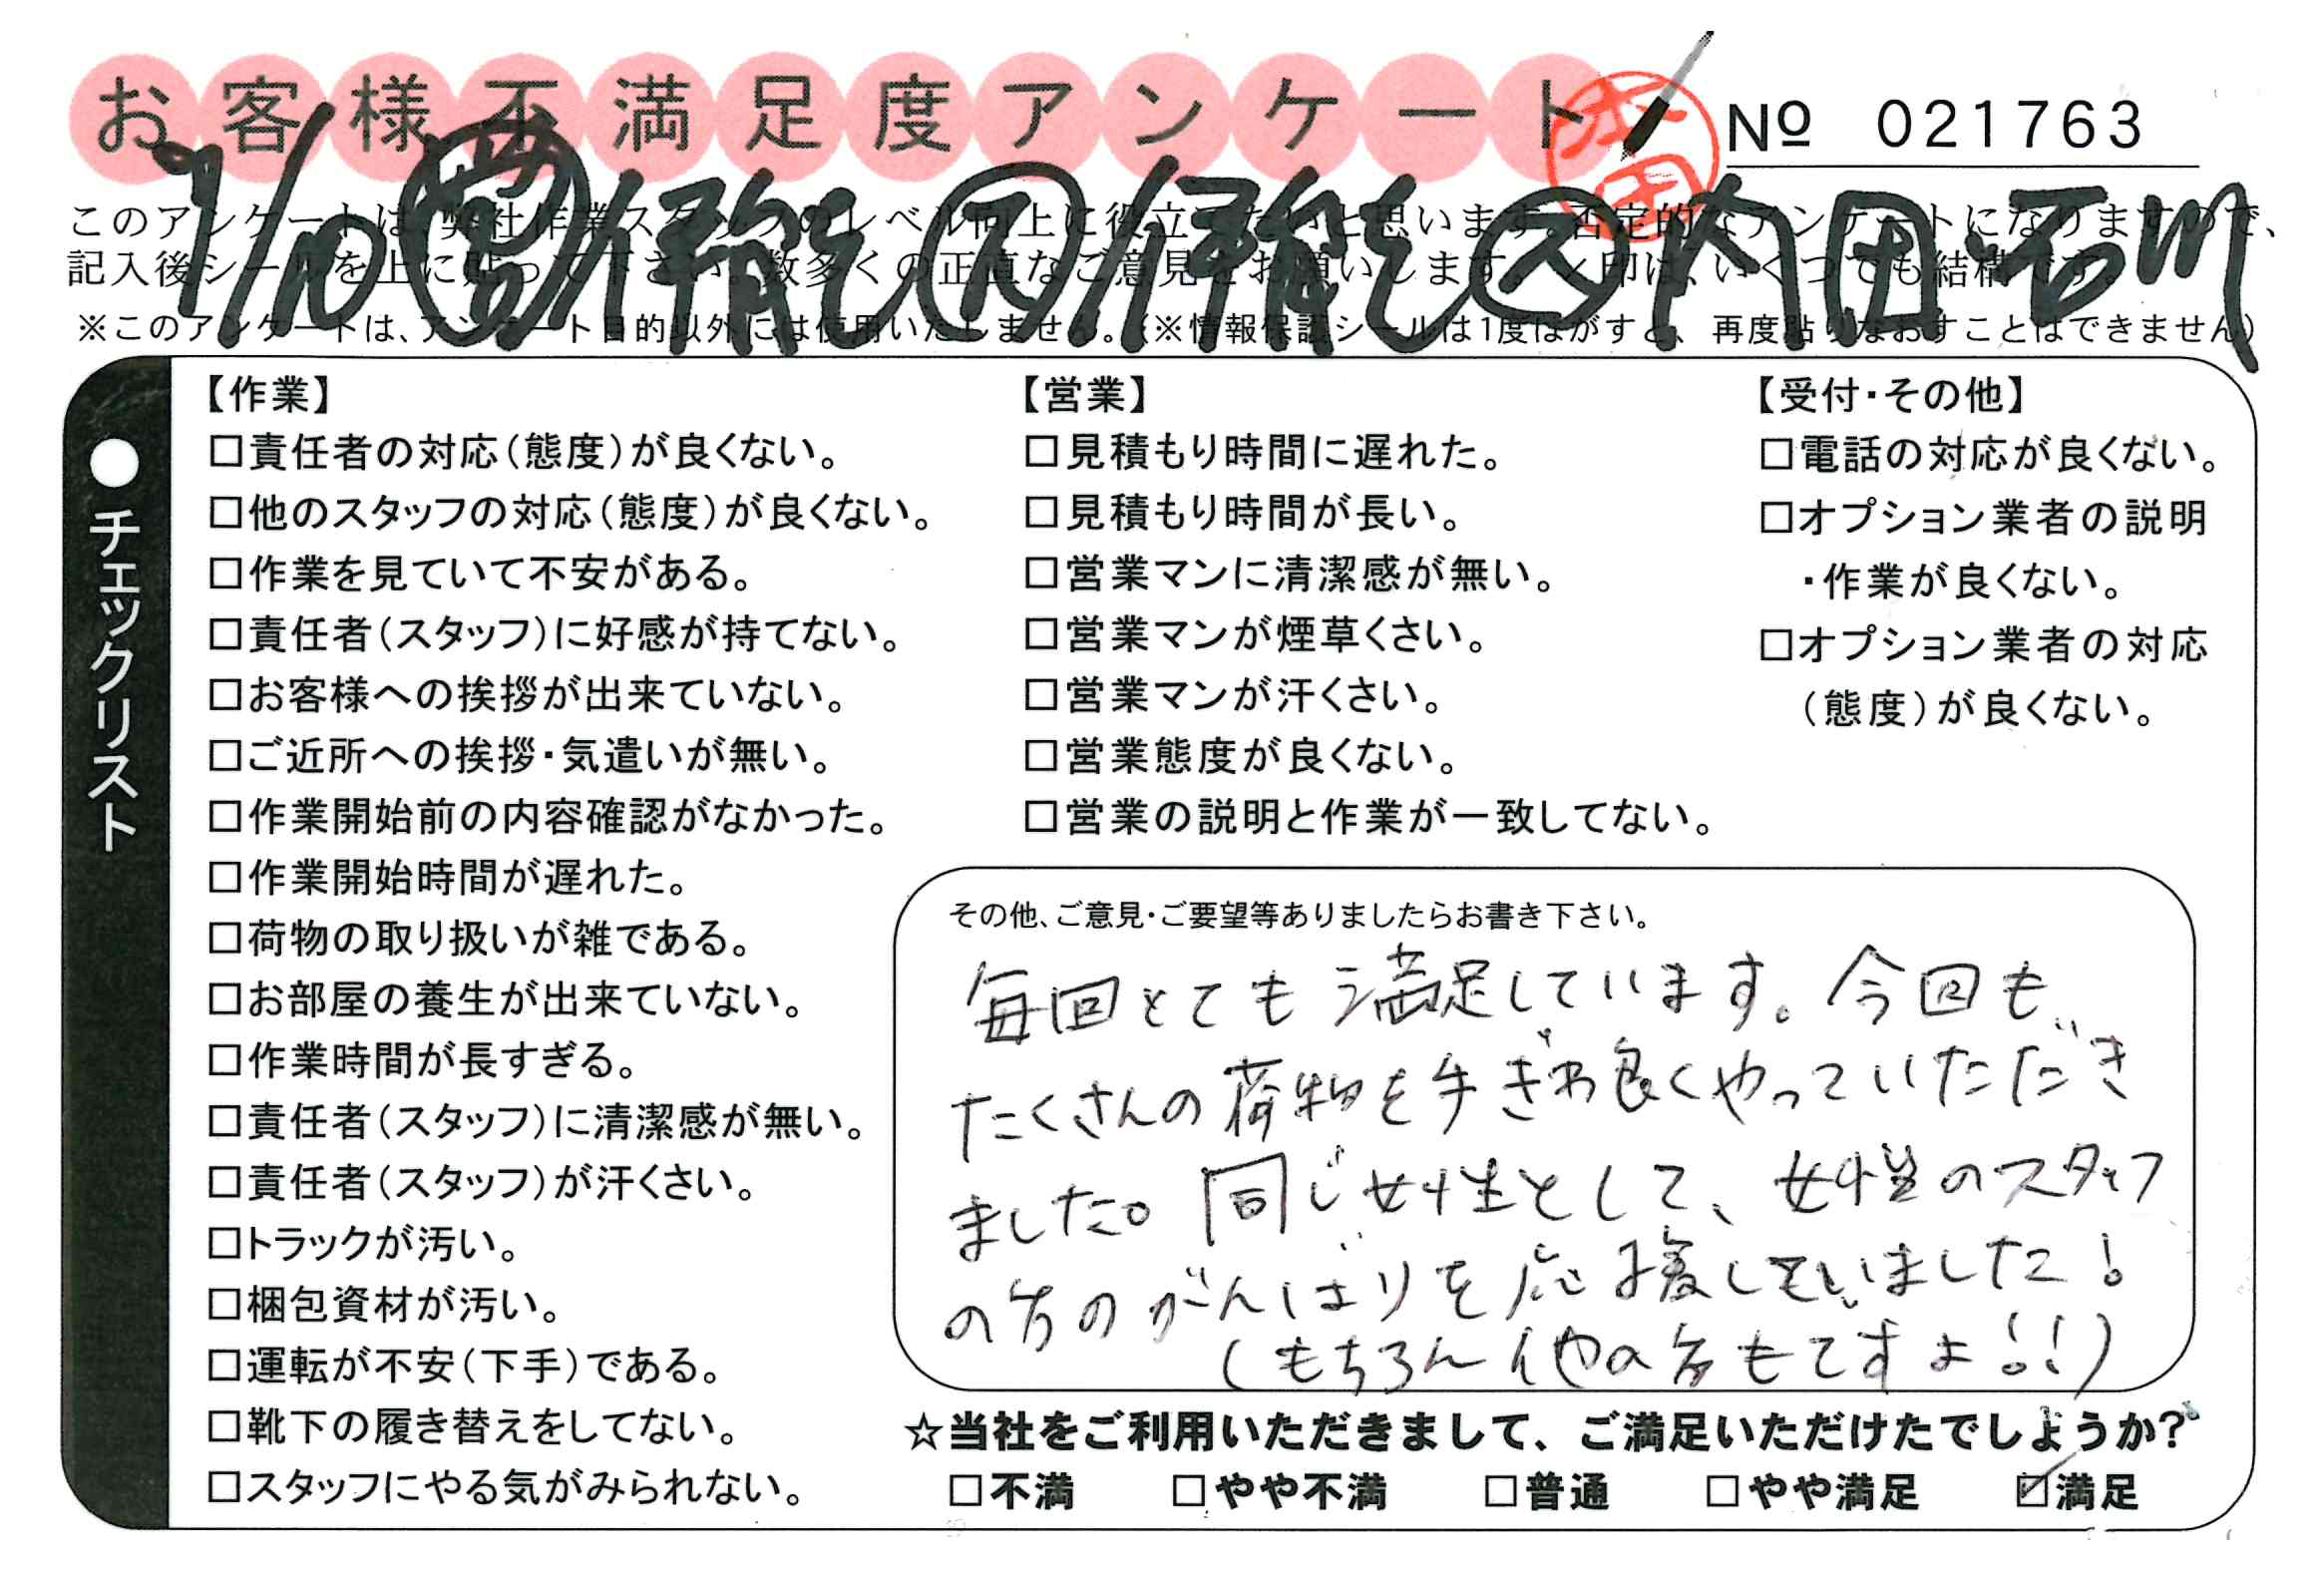 お客様不満足度アンケート
本田
№ 021763
9/10 伊能 ア/伊能 ス 内田・石川
このアンケートは、弊社作業スタッフのレベル向上に役立てたいと思います。否定的なアンケートになりますので、
記入後シールを上に貼って下さい。数多くの正直なご意見をお願いします。✓印は、いくつでも結構です。
※このアンケートは、アンケート目的以外には使用いたしません。(※情報保護シールは1度はがすと、再度貼りなおすことはできません)
●チェックリスト
【作業】
□責任者の対応(態度)が良くない。
□他のスタッフの対応(態度)が良くない。
□作業を見ていて不安がある。
□責任者(スタッフ)に好感が持てない。
□お客様への挨拶が出来ていない。
□ご近所への挨拶・気遣いが無い。
□作業開始前の内容確認がなかった。
□作業開始時間が遅れた。
□荷物の取り扱いが雑である。
□お部屋の養生が出来ていない。
□作業時間が長すぎる。
□責任者(スタッフ)に清潔感が無い。
□責任者(スタッフ)が汗くさい。
□トラックが汚い。
□梱包資材が汚い。
□運転が不安(下手)である。
□靴下の履き替えをしてない。
□スタッフにやる気がみられない。
【営業】
□見積もり時間に遅れた。
□見積もり時間が長い。
□営業マンに清潔感が無い。
□営業マンが煙草くさい。
□営業マンが汗くさい。
□営業態度が良くない。
□営業の説明と作業が一致してない。
【受付・その他】
□電話の対応が良くない。
□オプション業者の説明
・作業が良くない。
□オプション業者の対応
(態度)が良くない。
その他、ご意見・ご要望等ありましたらお書き下さい。
毎回とても満足しています。今回も
たくさんの荷物を手ぎわ良くやっていただき
ました。同じ女性として、女性のスタッフ
の方のがんばりを応援していました!
(もちろん他の方もですよ!!)
☆当社をご利用いただきまして、ご満足いただけたでしょうか?
□不満 □やや不満 □普通 □やや満足 ☑満足